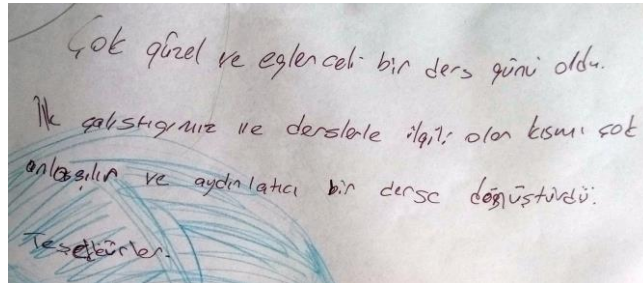 Çok güzel ve eğlenceli bir ders günü oldu.
İlk çalıştığımız ve derslerle ilgili olan kısmı çok
anlaşılır ve aydınlatıcı bir derse dönüştürdü.
Teşekkürler.